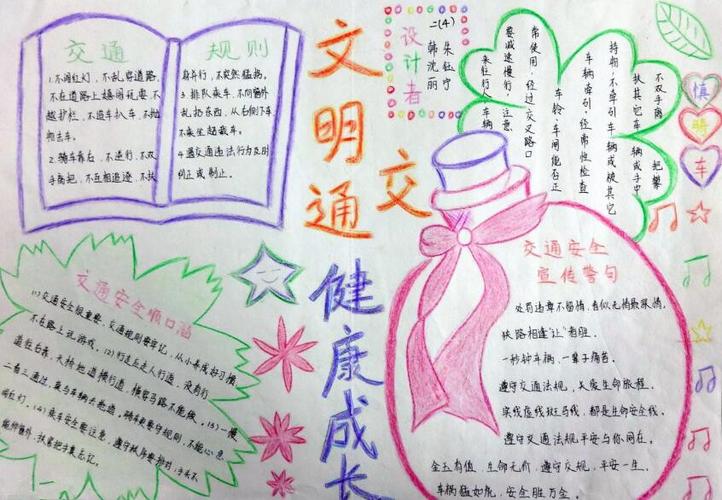 交通
规则
1.不闯红灯，不乱穿道路，
不在道路上嬉闹玩耍，不
越护栏，不追车扒车，不抛
2.骑车靠右，不逆行，不双
手离把，不互相追逐，不扶
身并行，不突然猛拐。
3.排队乘车，不向窗外
乱扔东西，从右侧下车
不乘坐超载车。
4.遇交通违法行为及时
纠正或制止。
文明交通
健康成长
设计者
二(4)
朱钰宁
韩沈丽
常使用，经过交叉路口
要减速慢行，注意
来往行人、车辆
车铃、车闸能否正
车辆牵引，经常性检查
持物，不牵引车辆或被其它
扶其它车辆或手中
不双手离把，攀
慎骑车
交通安全顺口溜
(1)交通安全很重要，交通规则要牢记，从小养成好习惯，
不在路上玩游戏。(2)行走应走人行道，没有行
道往右靠，天桥地道横行道，横穿马路不能做。(3)一慢
二看三通过，莫与车辆去抢道。骑车更要守规则，不能心急
闯红灯。(4)乘车安全要注意，遵守秩序要排好，手头不
能伸窗外，扶紧把手莫忘记。
交通安全
宣传警句
处罚违章不留情，看似无情最深情。
狭路相逢“让”者胜。
一秒钟车祸，一辈子痛苦。
遵守交通法规，关爱生命旅程。
实线虚线斑马线，都是生命安全线。
遵守交通法规，平安与你同在。
金玉有值，生命无价，遵守交规，平安一生。
车祸猛如虎，安全胜万金。